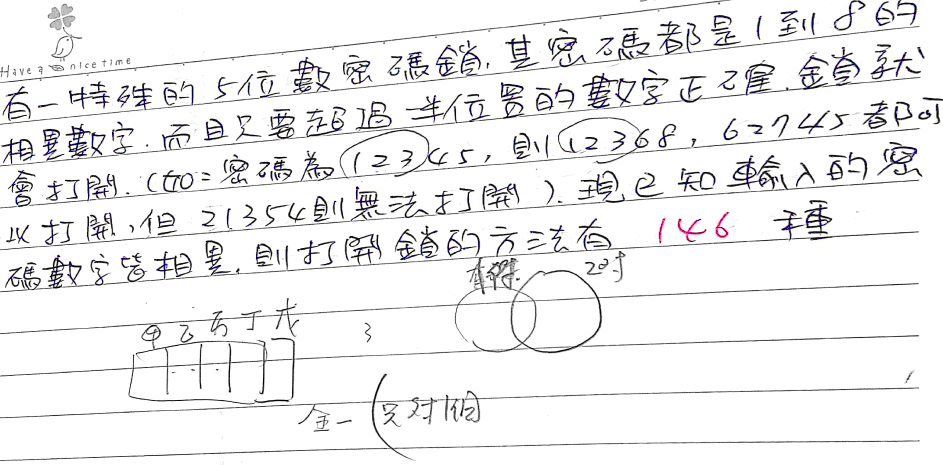 Have a nice time
有一特殊的5位數密碼鎖,其密碼都是1到8的
相異數字.而且只要超過一半位置的數字正確.鎖就
會打開.(如=密碼為12345,則12368,62745都可
以打開,但21354則無法打開).現已知輸入的密
碼數字皆相異,則打開鎖的方法有 146 種
2對
甲乙丙丁戊 3
全-(只對1個